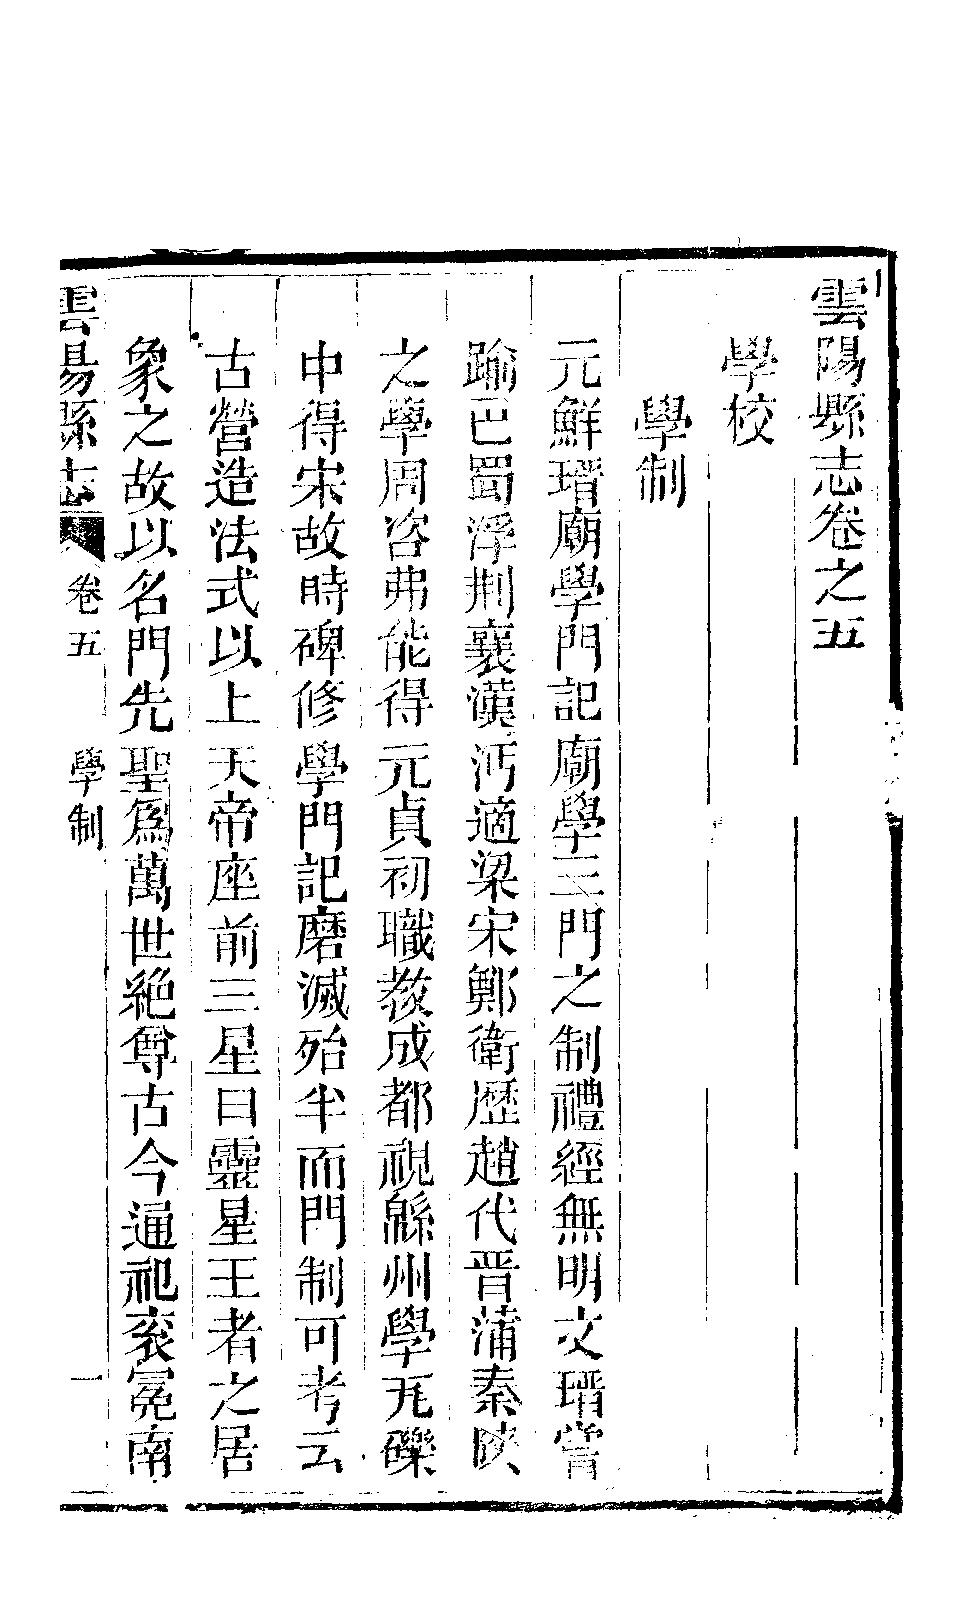 雲陽縣志卷之五
學校
學制
元鮮瑨廟學門記廟學三門之制禮經無明文瑨嘗
踰巴蜀浮荆襄漢沔適梁宋鄭衛歷趙代晉蒲秦陝
之學周咨弗能得元貞初職教成都視緜州學瓦礫
中得宋故時碑修學門記磨滅殆半而門制可考云
古營造法式以上天帝座前三星曰靈星王者之居
象之故以名門先聖爲萬世絶尊古今通祀衮冕南
雲陽縣志 卷五 學制 一